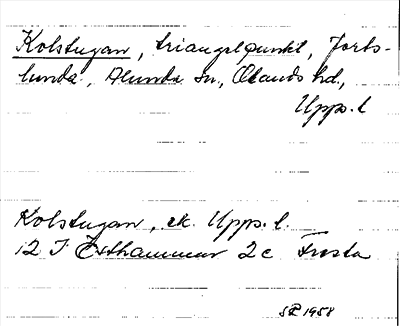 Kolstugan, triangelpunkt, Forks-
lunda, Alunda sn, Olands hd,
Upps. l
Kolstugan, ek. Upps. l.
12 I Östhammar 2 c Frosta
1958